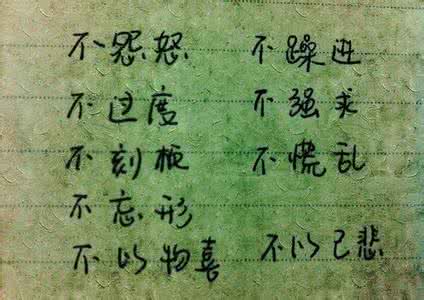 不怨怒 不躁进
不过度 不强求
不刻板 不慌乱
不忘形
不以物喜 不以己悲